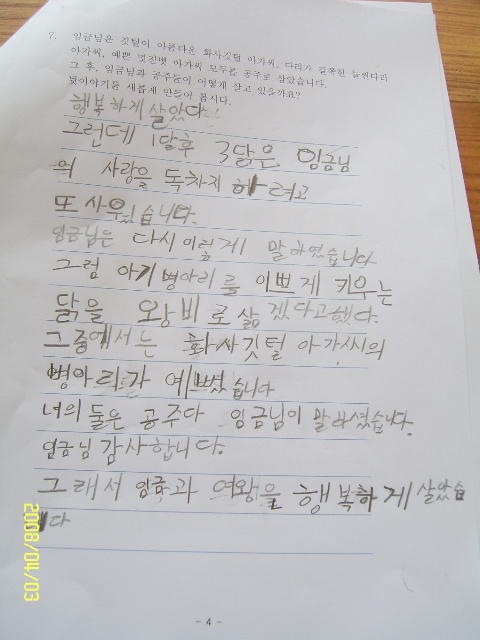 7. 임금님은 깃털이 아름다운 화사깃털 아가씨, 다리가 길쭉한 늘씬다리
아가씨, 예쁜 멋진볏 아가씨 모두를 공주로 삼았습니다.
그 후, 임금님과 공주들이 어떻게 살고 있을까요?
뒷이야기를 새롭게 만들어 봅시다.
행복하게 살았다.
그런데 1달후 3닭은 임금님
의 사랑을 독차지 하려고
또 싸우었습니다.
임금님은 다시 이렇게 말하였습니다
그럼 아기병아리를 이쁘게 키우는
닭을 왕비로 삶겠다고했다.
그중에서는 화사깃털 아가씨의
병아리가 예뻤습니다
너의 둘은 공주다 임금님이 말하셨습니다.
임금님 감사합니다.
그래서 임금과 여왕을 행복하게 살았습
니다
2008/04/03
- 4 -